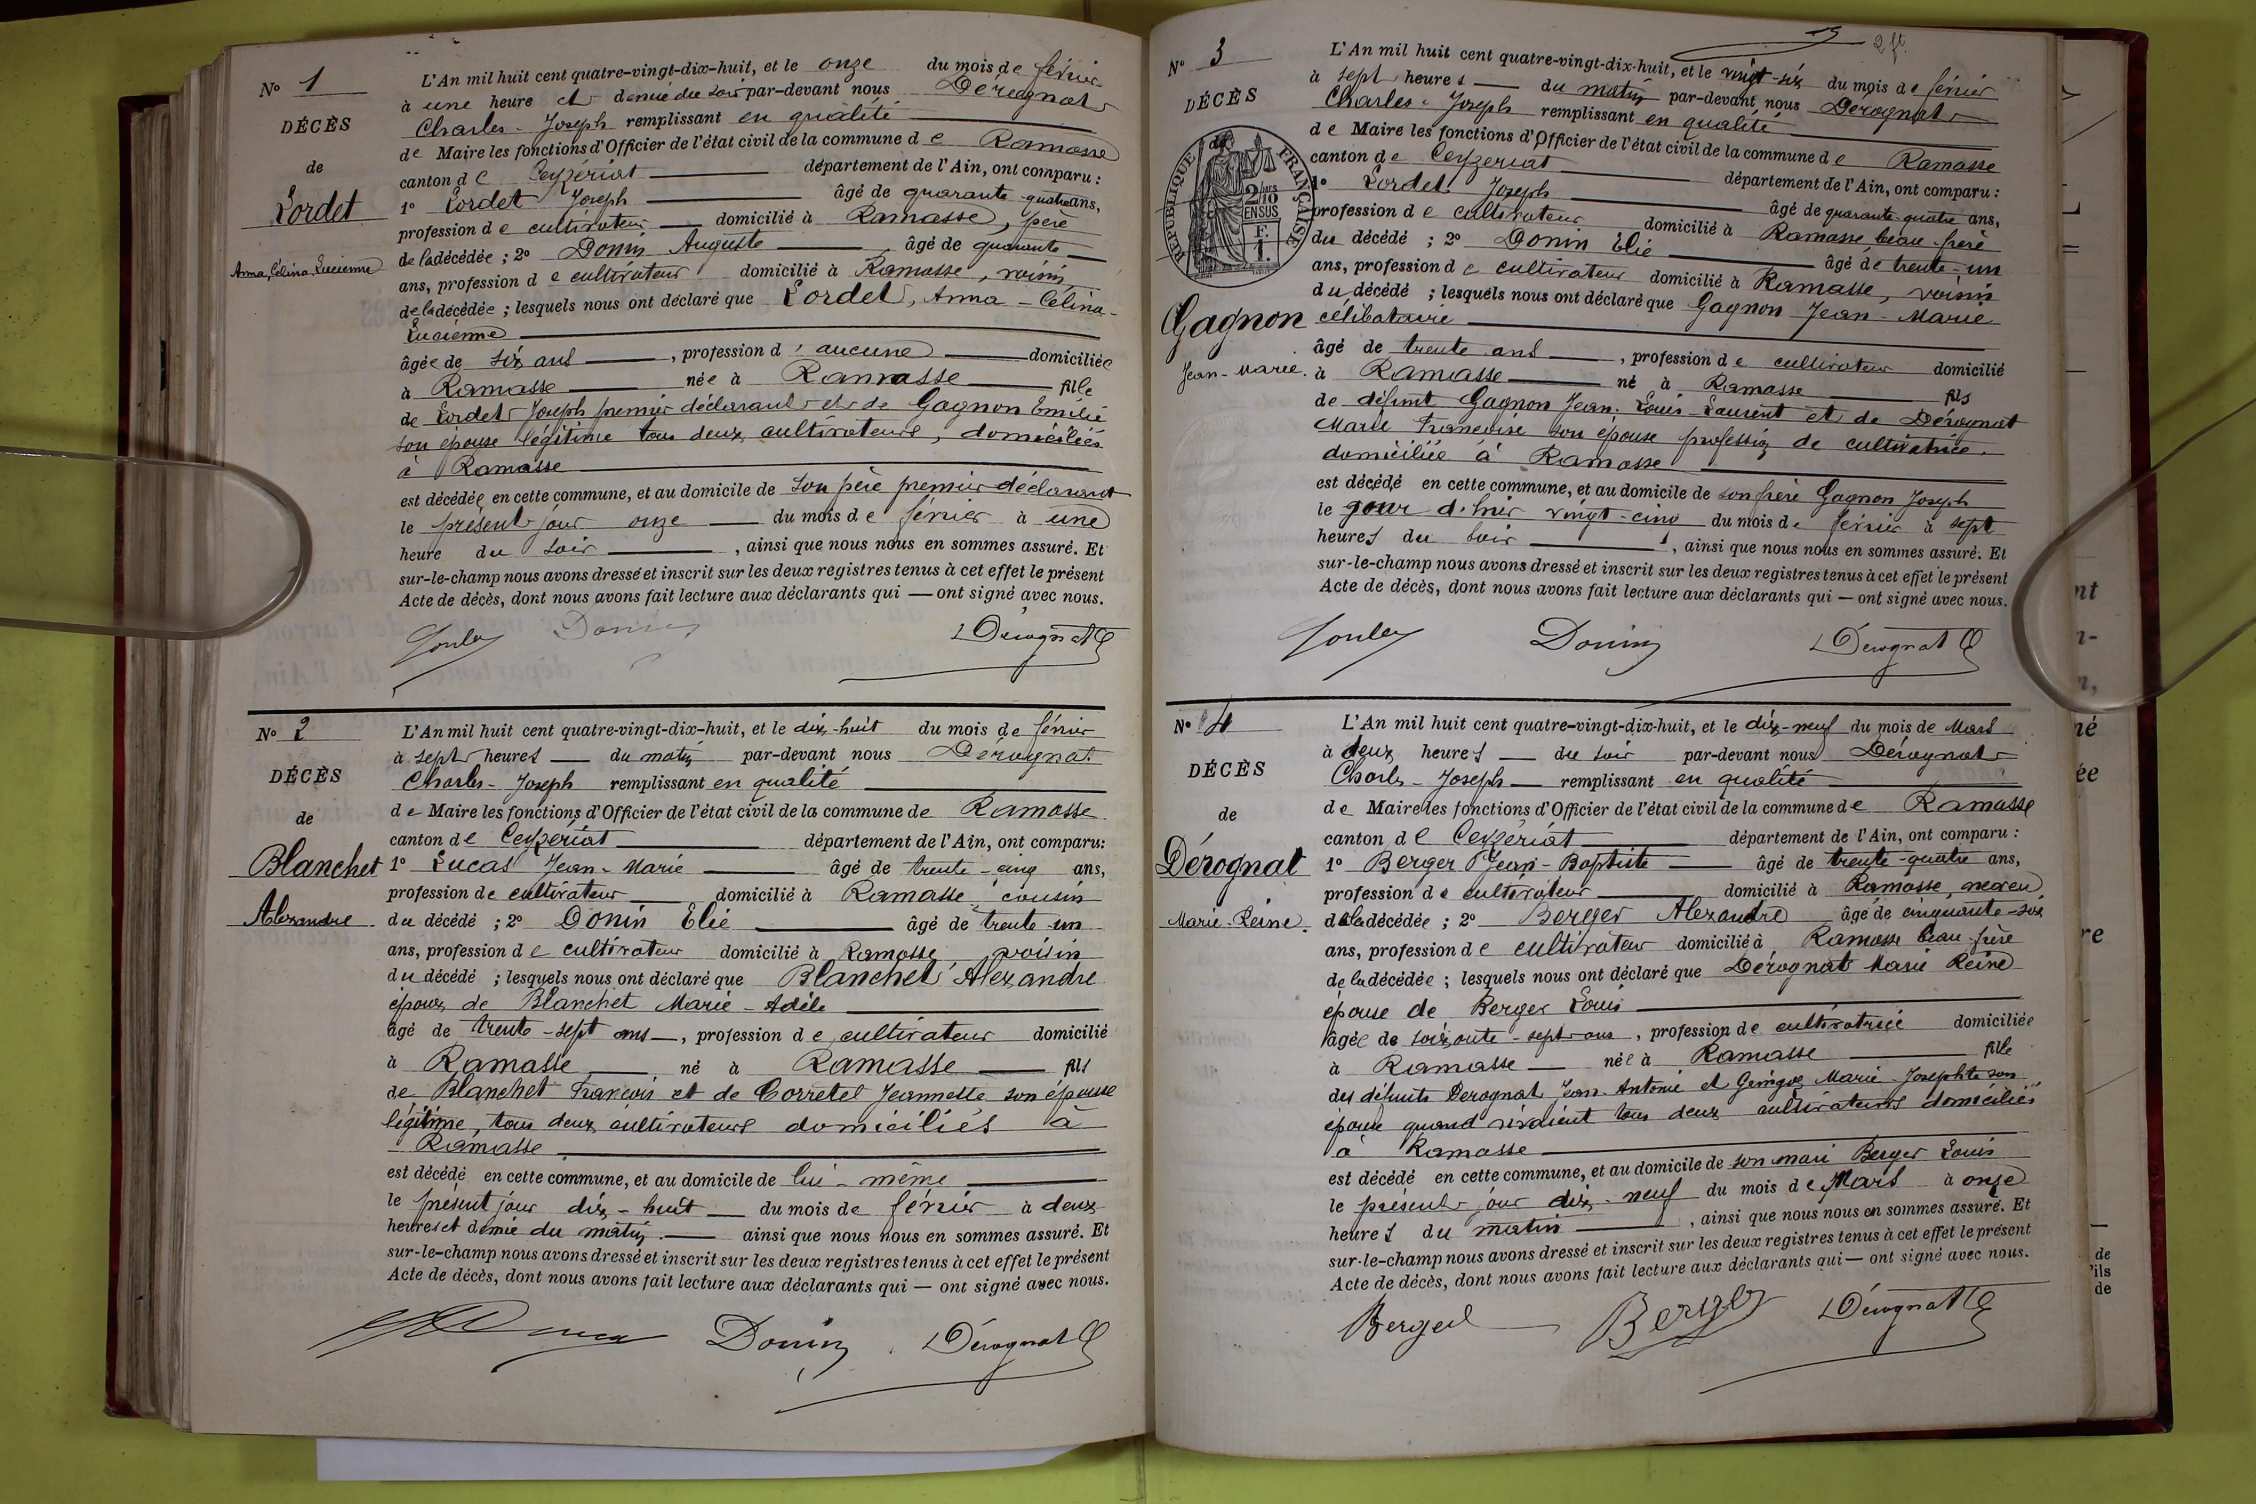 No 1
DÉCÈS
de
Lordet
Anna, Célina Lucienne
L'An mil huit cent quatre-vingt-dix-huit, et le onze du mois de février
à une heure et demie du soir par-devant nous Dérognat
Charles-Joseph remplissant en qualité
de Maire les fonctions d'Officier de l'état civil de la commune de Ramasse
canton de Ceyzériat département de l'Ain, ont comparu :
1o Lordet Joseph âgé de quarante-quatre ans,
profession de cultivateur domicilié à Ramasse, père
de la décédée ; 2o Donin Auguste âgé de quarante
ans, profession de cultivateur domicilié à Ramasse, voisin
de la décédée ; lesquels nous ont déclaré que Lordet, Anna-Célina-
Lucienne
âgée de six ans, profession d'aucune domiciliée
à Ramasse née à Ramasse fille
de Lordet Joseph premier déclarant et de Gagnon Emélie
son épouse légitime tous deux cultivateurs, domiciliés
à Ramasse
est décédée en cette commune, et au domicile de son père premier déclarant
le présent jour onze du mois de février à une
heure du soir, ainsi que nous nous en sommes assuré. Et
sur-le-champ nous avons dressé et inscrit sur les deux registres tenus à cet effet le présent
Acte de décès, dont nous avons fait lecture aux déclarants qui — ont signé avec nous.
Donin Dérognat
No 2
DÉCÈS
de
Blanchet
Alexandre
L'An mil huit cent quatre-vingt-dix-huit, et le dix-huit du mois de février
à sept heures du matin par-devant nous Derognat
Charles-Joseph remplissant en qualité
de Maire les fonctions d'Officier de l'état civil de la commune de Ramasse
canton de Ceyzériat département de l'Ain, ont comparu:
1o Lucas Jean-Marie âgé de trente-cinq ans,
profession de cultivateur domicilié à Ramasse, cousin
du décédé ; 2o Donin Elié âgé de trente-un
ans, profession de cultivateur domicilié à Ramasse, voisin
du décédé ; lesquels nous ont déclaré que Blanchet Alexandre
époux de Blanchet Marie-Adèle
âgé de trente-sept ans, profession de cultivateur domicilié
à Ramasse né à Ramasse fils
de Blanchet François et de Corretel Jeannette son épouse
légitime, tous deux cultivateurs domiciliés à
Ramasse
est décédé en cette commune, et au domicile de lui-même
le présent jour dix-huit du mois de février à deux
heures et demie du matin. ainsi que nous nous en sommes assuré. Et
sur-le-champ nous avons dressé et inscrit sur les deux registres tenus à cet effet le présent
Acte de décès, dont nous avons fait lecture aux déclarants qui — ont signé avec nous.
Donin Dérognat
2 ft.
No 3
DÉCÈS
de
RÉPUBLIQUE FRANÇAISE
2/10
EN SUS
F.
1.
Gagnon
Jean-Marie.
L'An mil huit cent quatre-vingt-dix-huit, et le vingt-six du mois de février
à sept heures du matin par-devant nous Dérognat
Charles-Joseph remplissant en qualité
de Maire les fonctions d'Officier de l'état civil de la commune de Ramasse
canton de Ceyzeriat département de l'Ain, ont comparu :
1o Lordet Joseph âgé de quarante-quatre ans,
profession de cultivateur domicilié à Ramasse, beau-frère
du décédé ; 2o Donin Elié âgé de trente-un
ans, profession de cultivateur domicilié à Ramasse, voisin
du décédé ; lesquels nous ont déclaré que Gagnon Jean-Marie
célibataire
âgé de trente ans, profession de cultivateur domicilié
à Ramasse né à Ramasse fils
de défunt Gagnon Jean-Louis-Laurent et de Dérognat
Marie Françoise son épouse profession de cultivatrice.
domiciliée à Ramasse
est décédé en cette commune, et au domicile de son frère Gagnon Joseph
le jour d'hier vingt-cinq du mois de février à sept
heures du soir, ainsi que nous nous en sommes assuré. Et
sur-le-champ nous avons dressé et inscrit sur les deux registres tenus à cet effet le présent
Acte de décès, dont nous avons fait lecture aux déclarants qui — ont signé avec nous.
Donin Dérognat
No 4
DÉCÈS
de
Dérognat
Marie-Reine.
L'An mil huit cent quatre-vingt-dix-huit, et le dix-neuf du mois de Mars
à deux heures du soir par-devant nous Dérognat
Charles-Joseph remplissant en qualité
de Maire les fonctions d'Officier de l'état civil de la commune de Ramasse
canton de Ceyzériat département de l'Ain, ont comparu :
1o Berger Jean-Baptiste âgé de trente-quatre ans,
profession de cultivateur domicilié à Ramasse, neveu
de la décédée ; 2o Berger Alexandre âgé de cinquante-six
ans, profession de cultivateur domicilié à Ramasse beau-frère
de la décédée ; lesquels nous ont déclaré que Dérognat Marie Reine
épouse de Berger Louis
âgée de soixante-sept ans, profession de cultivatrice domiciliée
à Ramasse née à Ramasse fille
des défunts Derognat, Jean-Antoine et Marie-Josephte son
épouse quand vivaient tous deux cultivateurs domiciliés
à Ramasse
est décédé en cette commune, et au domicile de son mari Berger Louis
le présent jour dix-neuf du mois de Mars à onze
heures du matin, ainsi que nous nous en sommes assuré. Et
sur-le-champ nous avons dressé et inscrit sur les deux registres tenus à cet effet le présent
Acte de décès, dont nous avons fait lecture aux déclarants qui — ont signé avec nous.
Berger Berger Dérognat